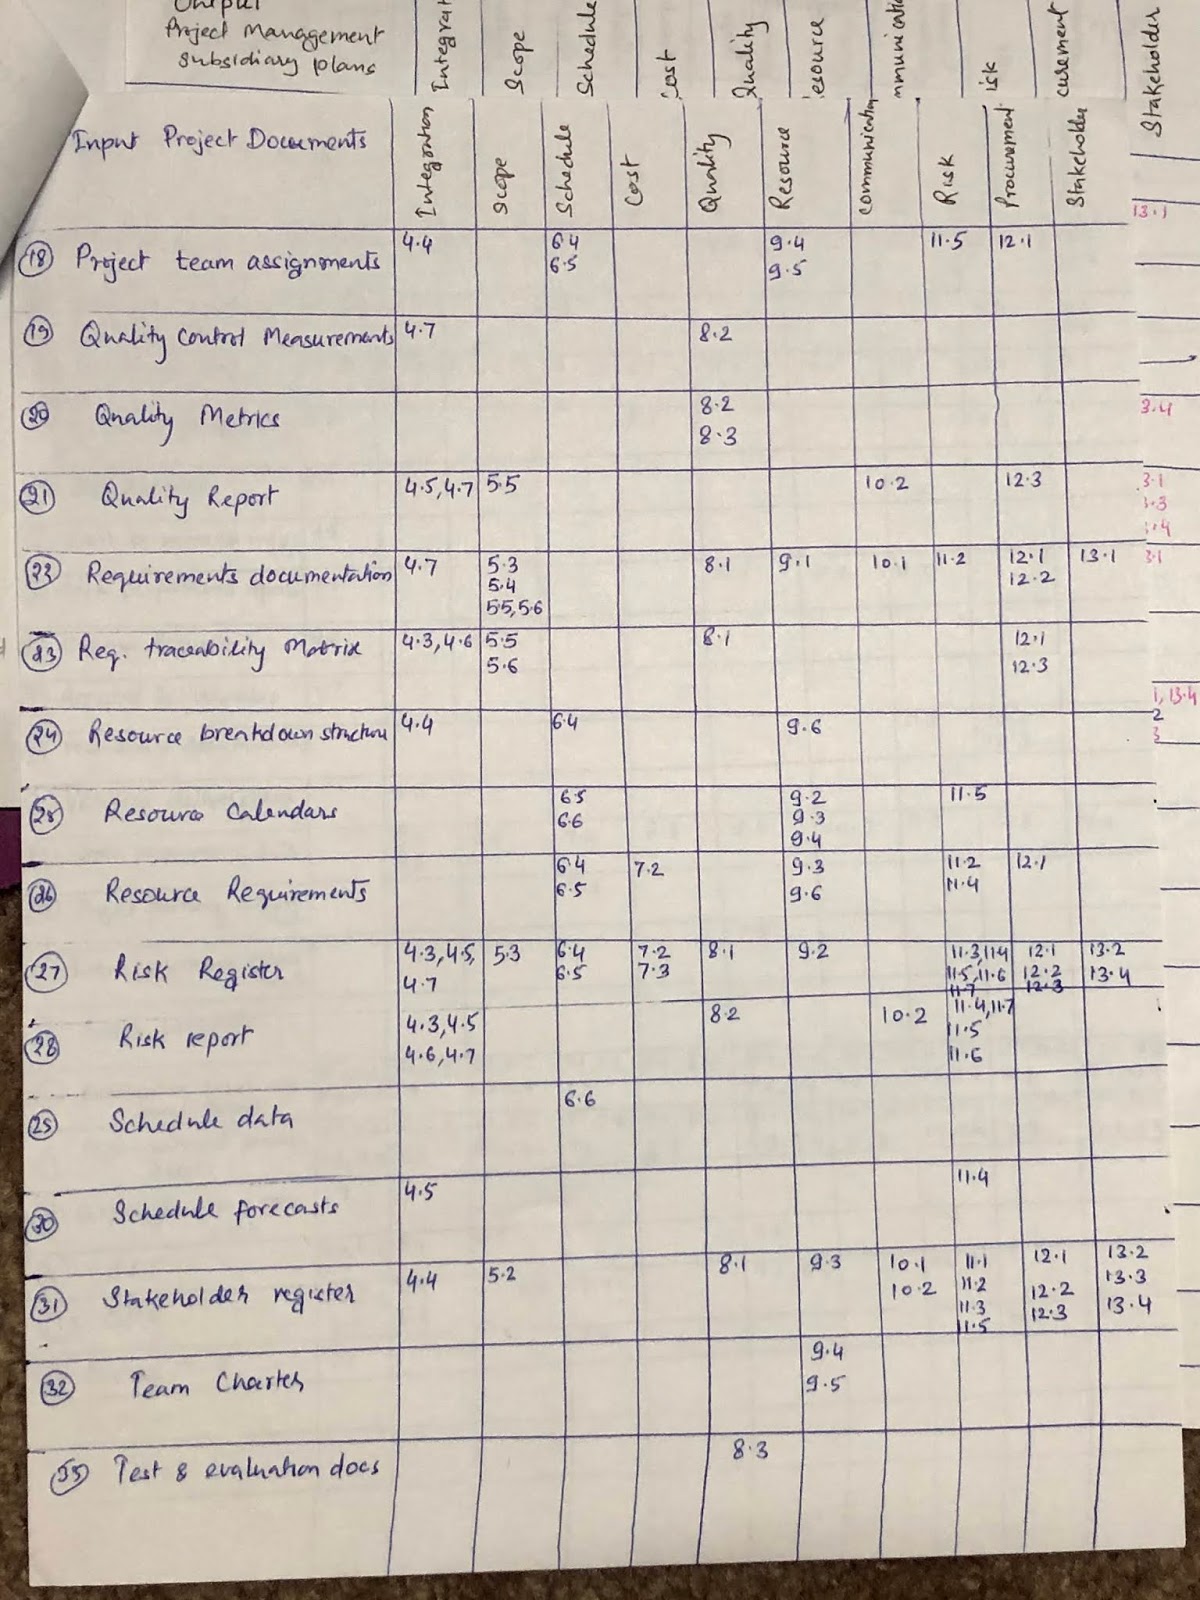 Output
Project Management
subsidiary plans
Scope
Schedule
Stakeholder
Input Project Documents
Integration
Scope
Schedule
Cost
Quality
Resource
Communication
Risk
Procurement
Stakeholder
13.1
18 Project team assignments 4.4 6.4 9.4 11.5 12.1
6.5 9.5
19 Quality Control Measurements 4.7 8.2
20 Quality Metrics 8.2
8.3
3.4
21 Quality Report 4.5,4.7 5.5 10.2 12.3
3.1
Requirements documentation 4.7 5.3 8.1 9.1 10.1 11.2 12.1 13.1 3.1
5.4 12.2
5.5,5.6
23 Req. traceability Matrix 4.3,4.6 5.5 8.1 12.1
5.6 12.3
1, 13.4
2
3
24 Resource breakdown structure 4.4 6.4 9.6
25 Resource Calendars 6.5 9.2 11.5
6.6 9.3
9.4
26 Resource Requirements 6.4 7.2 9.3 11.2 12.1
6.5 9.6 11.4
27 Risk Register 4.3,4.5, 5.3 6.4 7.2 8.1 9.2 11.3,11.4 12.1 13.2
4.7 6.5 7.3 11.5,11.6 12.2 13.4
11.7 12.3
28 Risk report 4.3,4.5 8.2 10.2 11.4,11.7
4.6,4.7 11.5
11.6
Schedule data 6.6
30 Schedule forecasts 4.5 11.4
31 Stakeholder register 4.4 5.2 8.1 9.3 10.1 11.1 12.1 13.2
10.2 11.2 12.2 13.3
11.3 12.3 13.4
11.5
32 Team Charter 9.4
9.5
Test & evaluation docs 8.3